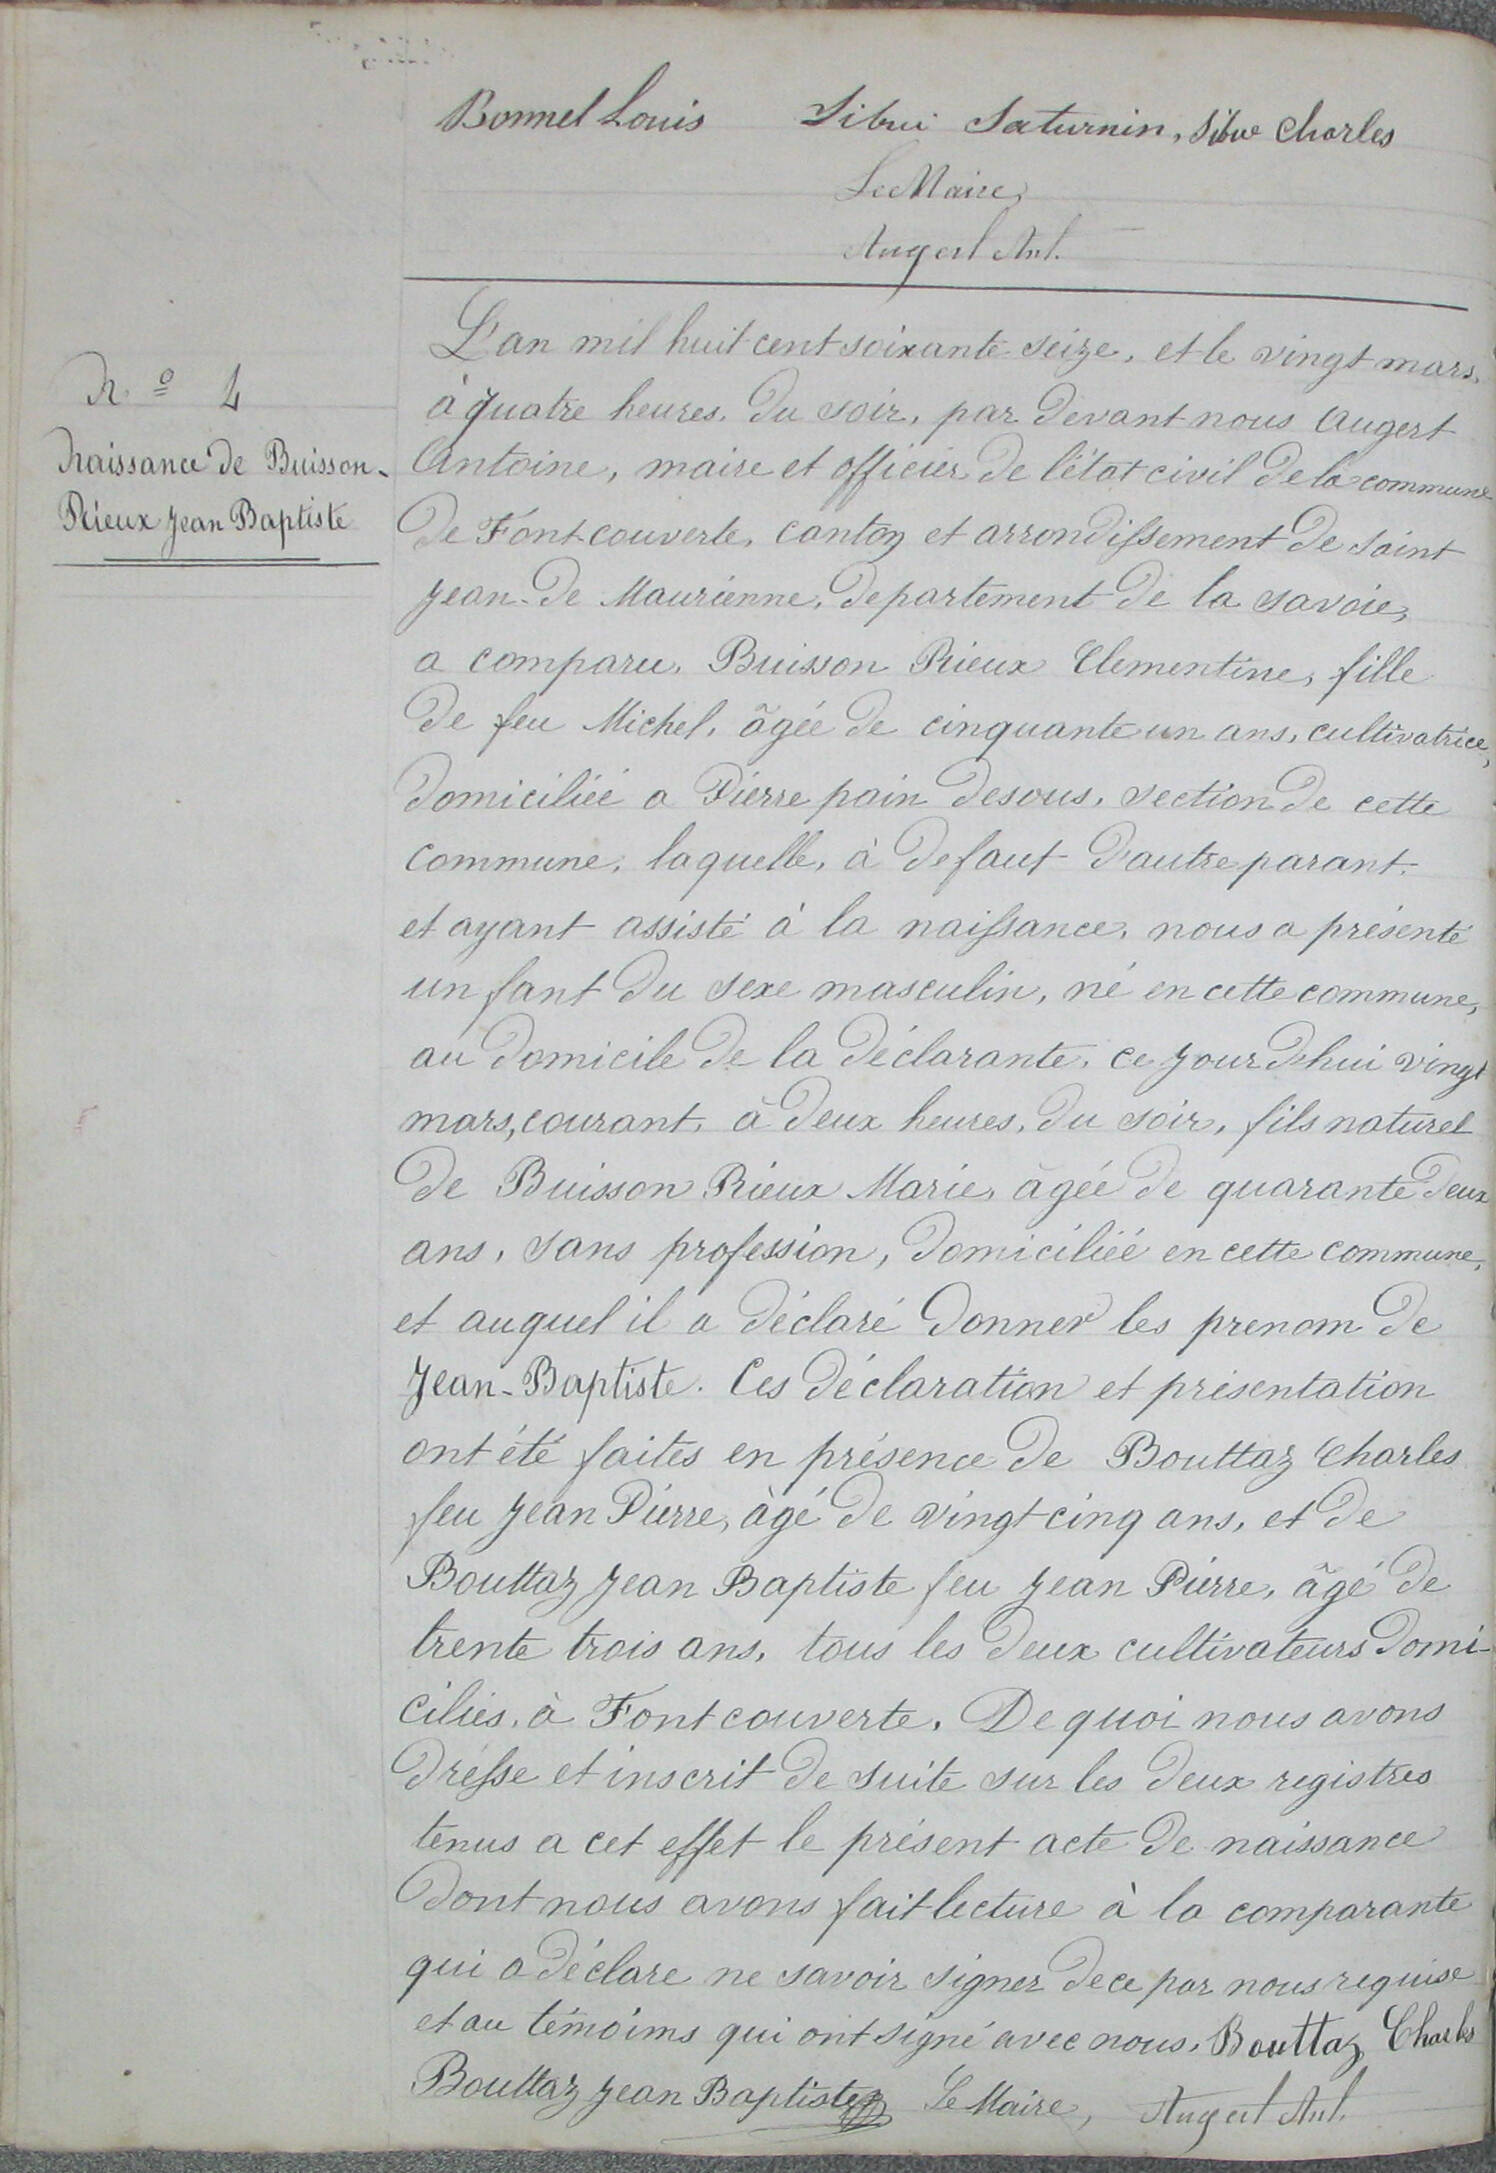 Bonnel Louis Sibue Saturnin, Sibue Charles
Le Maire,
Augert Ant.
N.º 4
Naissance de Buisson-
Rieux Jean Baptiste
L'an mil huit cent soixante seize, et le vingt mars,
à quatre heures, du soir, par devant nous Augert
Antoine, maire et officier de l'état civil de la commune
de Fontcouverte, canton et arrondissement de Saint
Jean-de Maurienne, departement de la Savoie,
a comparu, Buisson Rieux Clementine, fille
de feu Michel, âgée de cinquante un ans, cultivatrice,
domiciliée a Pierre pain desous, section de cette
commune, laquelle, à defaut d'autre parant,
et ayant assisté à la naissance, nous a présenté
un fant du sexe masculin, né en cette commune,
au domicile de la déclarante, ce jour d'hui vingt
mars, courant, à deux heures, du soir, fils naturel
de Buisson Rieux Marie, âgée de quarante deux
ans, sans profession, domiciliée en cette commune,
et auquel il a déclaré donner les prenom de
Jean-Baptiste. Ces déclaration et présentation
ont été faites en présence de Bouttaz Charles
feu Jean Pierre, âgé de vingt cinq ans, et de
Bouttaz Jean Baptiste feu Jean Pierre, âgé de
trente trois ans, tous les deux cultivateurs domi-
ciliés, à Fontcouverte. De quoi nous avons
dresse et inscrit de suite sur les deux registres
tenus a cet effet le présent acte de naissance
dont nous avons fait lecture à la comparante
qui a déclare ne savoir signer de ce par nous requise
et au témoims qui ont signé avec nous. Bouttaz Charles
Bouttaz Jean Baptiste Le Maire, Augert Ant.